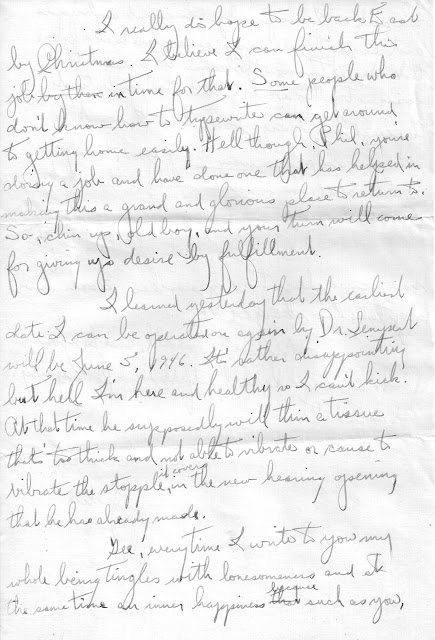 I really do hope to be back East
by Christmas. I believe I can finish this
job by then in time for that. Some people who
don't know how to typewrite can get around
to getting home easily. Hell though, Phil, you're
doing a job and have done one that has helped in
making this a grand and glorious place to return to.
So, chin up, old boy, and your turn will come
for giving up desire by fulfillment.
I learned yesterday that the earliest
date I can be operated on again by Dr. Lempert
will be June 5, 1946. It's rather disappointing
but hell I'm here and healthy so I can't kick.
At that time he supposedly will thin a tissue
that's too thick and not able to vibrate or cause to
vibrate the stopple, it covers, in the new hearing opening
that he has already made.
Gee, everytime I write to you my
whole being tingles with lonesomeness and at
the same time an inner happiness because such as you,